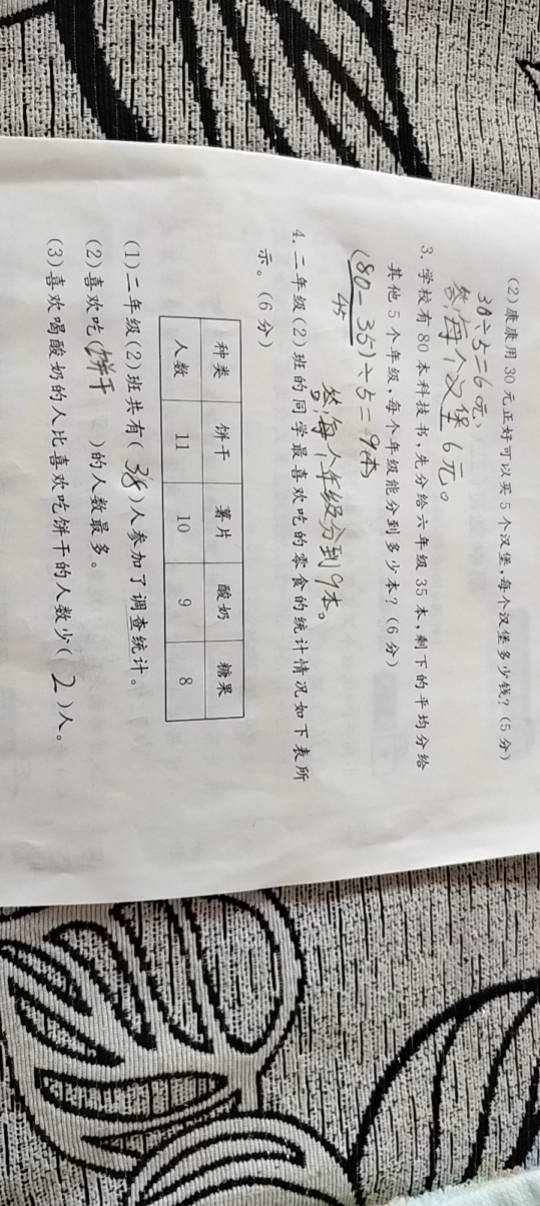 (2)康康用30元正好可以买5个汉堡,每个汉堡多少钱?(5分)
30÷5=6元
答:每个汉堡6元。
3.学校有80本科技书,先分给六年级35本,剩下的平均分给
其他5个年级,每个年级能分到多少本?(6分)
(80-35)÷5=9本
45
答:每个年级分到9本。
4.二年级(2)班的同学最喜欢吃的零食的统计情况如下表所
示。(6分)
种类 饼干 薯片 酸奶 糖果
人数 11 10 9 8
(1)二年级(2)班共有(38)人参加了调查统计。
(2)喜欢吃(饼干)的人数最多。
(3)喜欢喝酸奶的人比喜欢吃饼干的人数少(2)人。